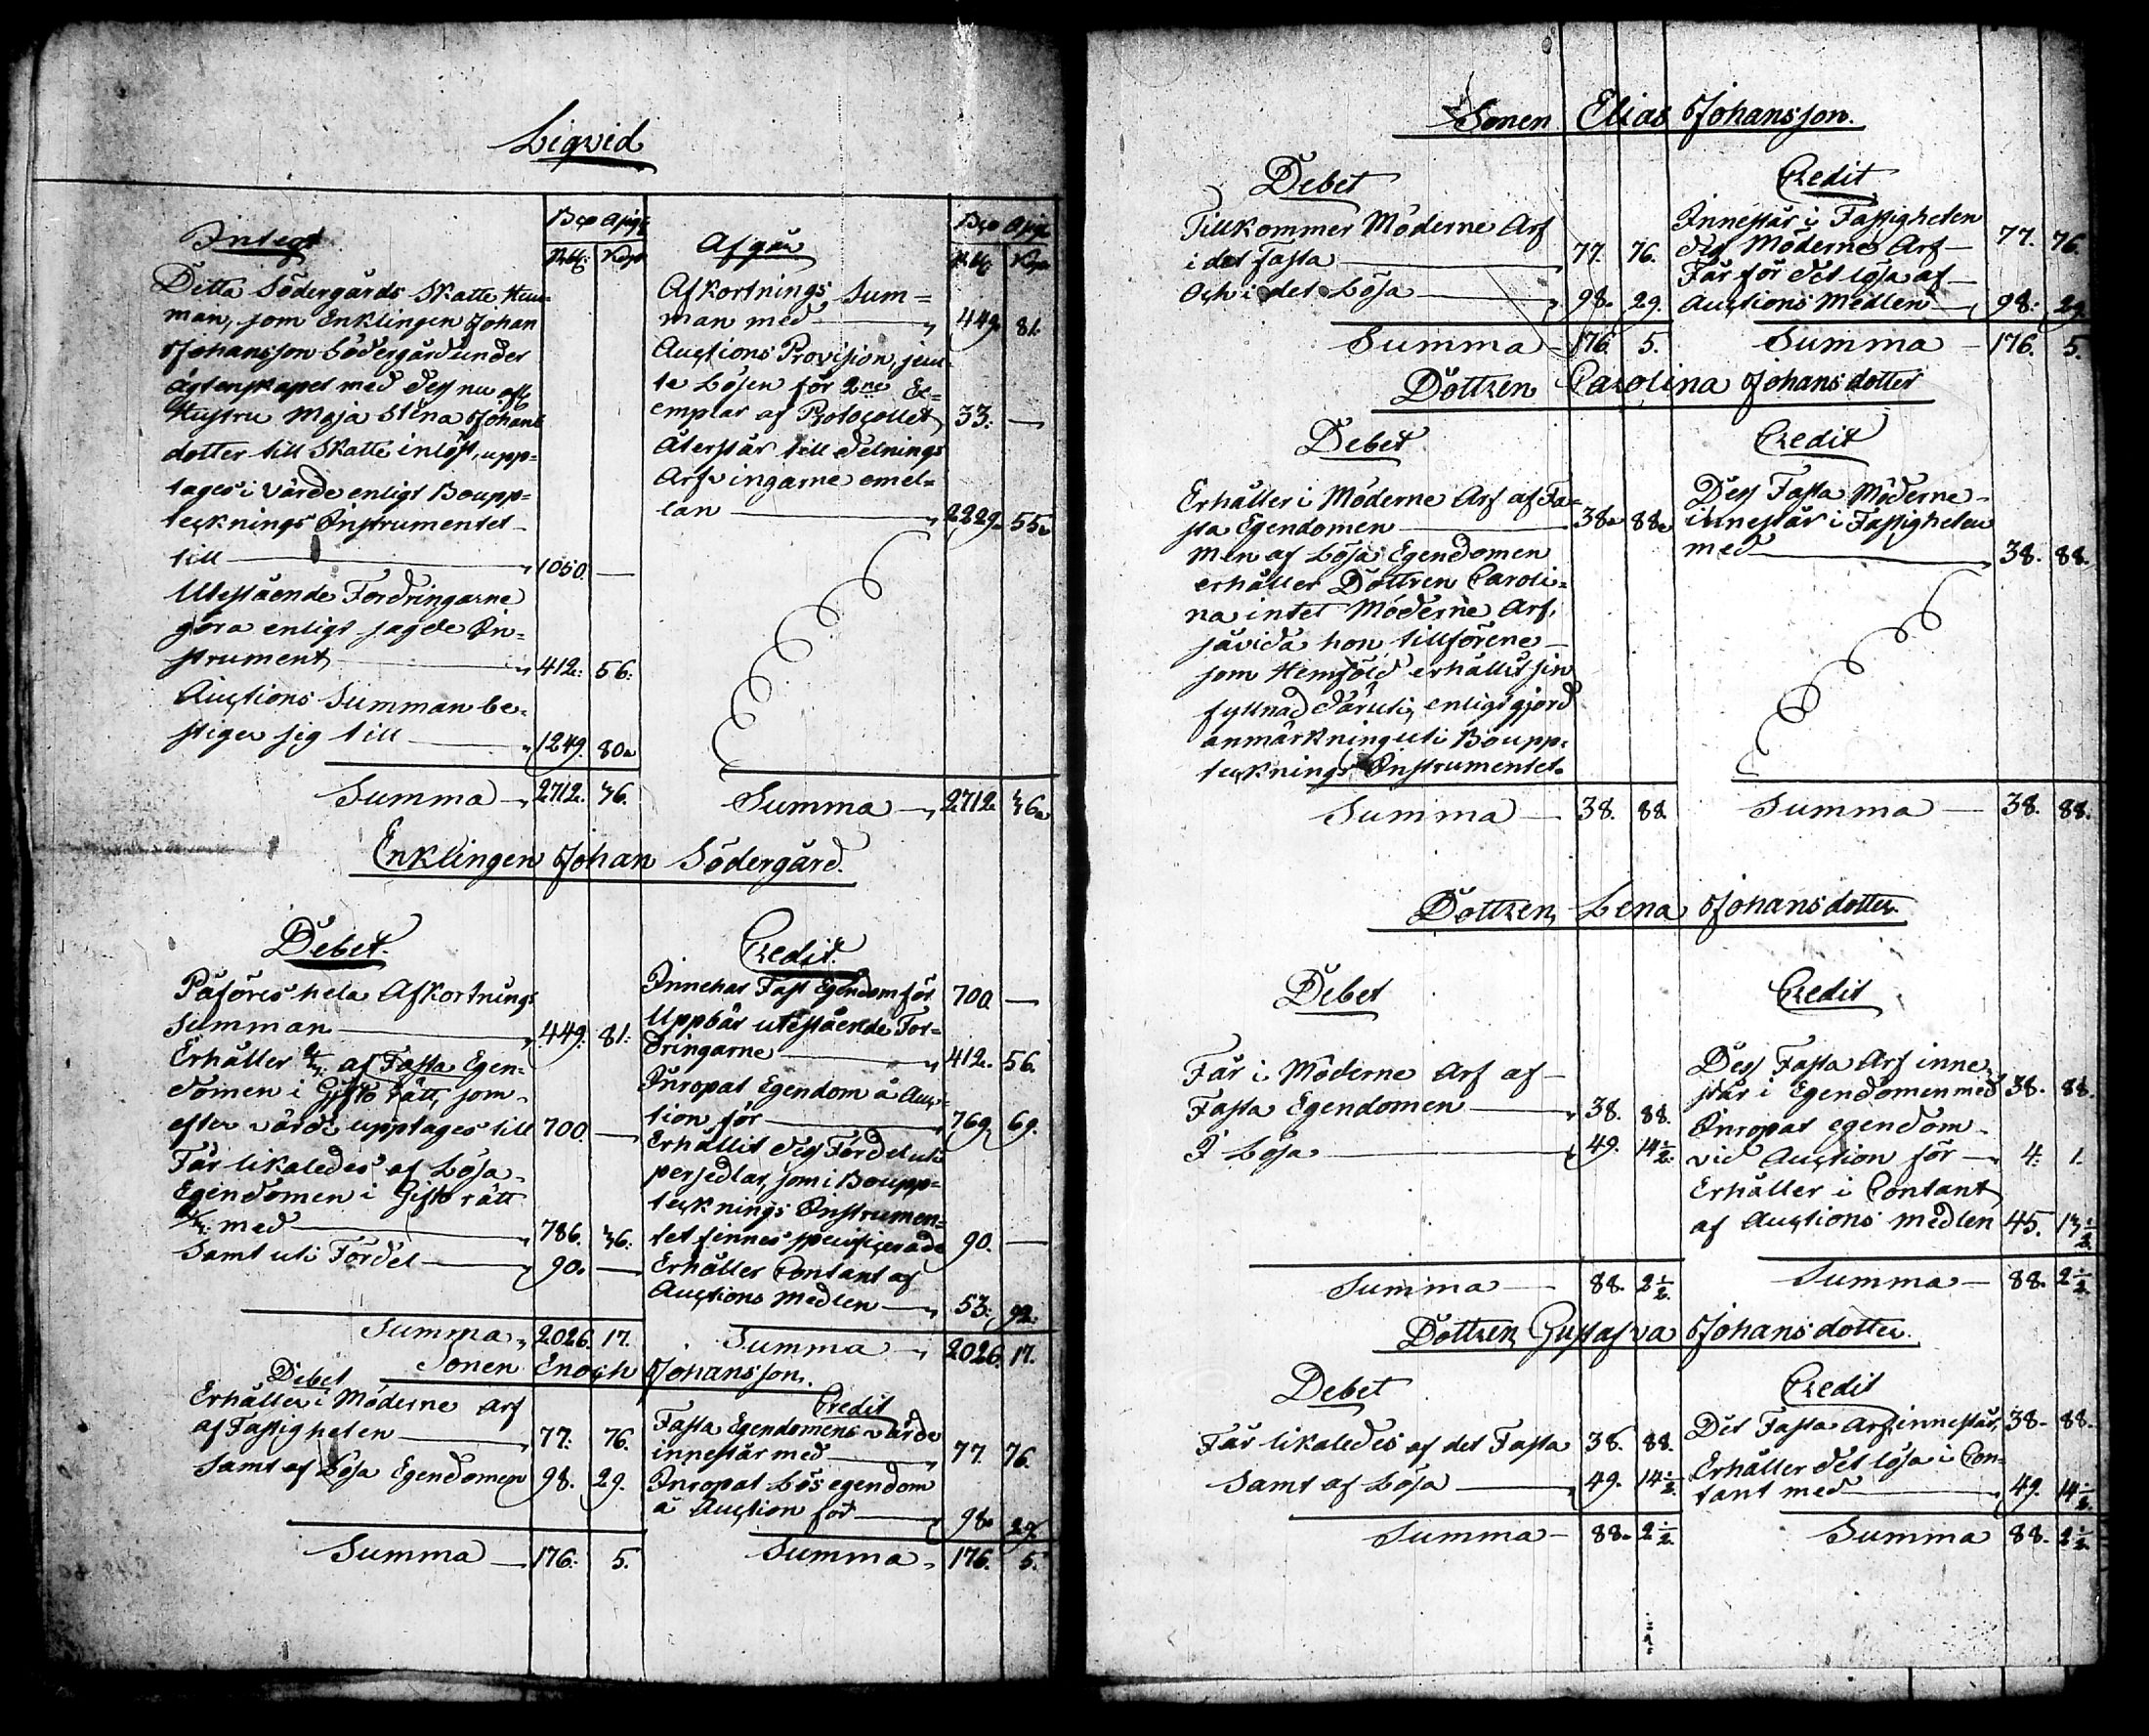 Liqvid
Bco Assig:
Rubl: Kop:
Integt
Ditta Södergårds Skatte Hem=
man, som Enklingen Johan
Johansson Södergård under
ägtenskapet med dess nu afl:
Hustru Maja Stina Johans
dotter till Skatte inlöst, upp=
tages i värde enligt Boupp=
tecknings Instrumentet
till 1050. —
Utestående Fordringarne
göra enligt sagde In=
strument 412. 56.
Auctions Summan be=
stiger sig till 1249. 80.
Summa 2712. 36.
Afgår
Bco Assig:
Rubl: Kop:
Afkortnings Sum=
man med 449. 81.
Auctions Provision, jem
te Lösen för 2ne Ex=
emplar af Protocollet 33. —
Återstår till delnings
Arfvingarne emel=
lan 2229. 55.
Summa 2712. 36.
Enklingen Johan Södergård.
Debet.
Påföres hela Afkortnings
Summan 449. 81.
Erhåller 2/3: af Fasta Egen=
domen i Gifto rätt, som
efter värde upptages till 700. —
Får likaledes af Lösa
Egendomen i Gifto rätt
2/3: med 786. 36.
Samt uti Fördel 90. —
Summa 2026. 17.
Credit.
Innehar Fast Egendom för 700. —
Uppbär utestående For=
dringarne 412. 56.
Inropat Egendom å Auc=
tion för 769. 69.
Erhållit dess Fördel uti
persedlar, som i Boupp=
tecknings Instrumen=
tet finnes specificerade 90. —
Erhåller Contant af
Auctions medlen 53. 92.
Summa 2026. 17.
Sonen Enoch Johansson.
Debet
Erhåller i Möderne Arf
af Fastigheten 77. 76.
Samt af Lösa Egendomen 98. 29.
Summa 176. 5.
Credit
Fasta Egendomens värde
innestår med 77. 76.
Inropat Lös egendom
å Auction för 98. 29.
Summa 176. 5.
Sonen Elias Johansson.
Debet
Tillkommer Möderne Arf
i det Fasta 77. 76.
Och i det Lösa 98. 29.
Summa 176. 5.
Credit
Innestår i Fastigheten
dess Möderne Arf 77. 76.
Får för det lösa af
Auctions Medlen 98. 29.
Summa 176. 5.
Dottren Carolina Johansdotter
Debet
Erhåller i Möderne Arf af Fa=
sta Egendomen 38. 88.
Men af Lösa Egendomen
erhåller Dottren Caroli=
na intet Möderne Arf,
såvida hon tillförene
som Hemföld erhållit sin
fyllnad däruti, enligt gjord
anmärkning uti Boupp=
tecknings Instrumentet.
Summa 38. 88.
Credit
Dess Fasta Möderne
innestår i Fastigheten
med 38. 88.
Summa 38. 88.
Dottren Lena Johansdotter.
Debet
Får i Möderne Arf af
Fasta Egendomen 38. 88.
I Lösa 49. 14 1/2.
Summa 88. 2 1/2.
Credit
Dess Fasta Arf inne
står i Egendomen med 38. 88.
Inropat egendom
vid Auction för 4. 1.
Erhåller i Contant
af Auctions medlen 45. 13 1/2.
Summa 88. 2 1/2
Dottren Gustafva Johansdotter.
Debet
Får likaledes af det Fasta 38. 88.
Samt af Lösa 49. 14 1/2.
Summa 88. 2 1/2.
Credit
Det Fasta Arf innestår, 38. 88.
Erhåller det lösa i Con=
tant med 49. 14 1/2.
Summa 88. 2 1/2